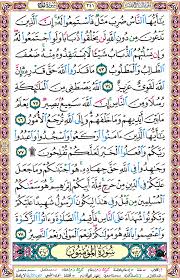 يَٰٓأَيُّهَا ٱلنَّاسُ ضُرِبَ مَثَلٌ فَٱسْتَمِعُوا۟ لَهُۥٓ إِنَّ ٱلَّذِينَ
تَدْعُونَ مِن دُونِ ٱللَّهِ لَن يَخْلُقُوا۟ ذُبَابًا وَلَوِ ٱجْتَمَعُوا۟ لَهُۥ
وَإِن يَسْلُبْهُمُ ٱلذُّبَابُ شَيْـًٔا لَّا يَسْتَنقِذُوهُ مِنْهُ ضَعُفَ
ٱلطَّالِبُ وَٱلْمَطْلُوبُ ٧٣ مَا قَدَرُوا۟ ٱللَّهَ حَقَّ قَدْرِهِۦٓ إِنَّ
ٱللَّهَ لَقَوِىٌّ عَزِيزٌ ٧٤ ٱللَّهُ يَصْطَفِى مِنَ ٱلْمَلَٰٓئِكَةِ
رُسُلًا وَمِنَ ٱلنَّاسِ إِنَّ ٱللَّهَ سَمِيعٌۢ بَصِيرٌ ٧٥ يَعْلَمُ
مَا بَيْنَ أَيْدِيهِمْ وَمَا خَلْفَهُمْ وَإِلَى ٱللَّهِ تُرْجَعُ ٱلْأُمُورُ ٧٦
يَٰٓأَيُّهَا ٱلَّذِينَ ءَامَنُوا۟ ٱرْكَعُوا۟ وَٱسْجُدُوا۟ وَٱعْبُدُوا۟
رَبَّكُمْ وَٱفْعَلُوا۟ ٱلْخَيْرَ لَعَلَّكُمْ تُفْلِحُونَ ٧٧
وَجَٰهِدُوا۟ فِى ٱللَّهِ حَقَّ جِهَادِهِۦ هُوَ ٱجْتَبَىٰكُمْ وَمَا جَعَلَ
عَلَيْكُمْ فِى ٱلدِّينِ مِنْ حَرَجٍ مِّلَّةَ أَبِيكُمْ إِبْرَٰهِيمَ هُوَ سَمَّىٰكُمُ
ٱلْمُسْلِمِينَ مِن قَبْلُ وَفِى هَٰذَا لِيَكُونَ ٱلرَّسُولُ شَهِيدًا عَلَيْكُمْ
وَتَكُونُوا۟ شُهَدَآءَ عَلَى ٱلنَّاسِ فَأَقِيمُوا۟ ٱلصَّلَوٰةَ وَءَاتُوا۟ ٱلزَّكَوٰةَ
وَٱعْتَصِمُوا۟ بِٱللَّهِ هُوَ مَوْلَىٰكُمْ فَنِعْمَ ٱلْمَوْلَىٰ وَنِعْمَ ٱلنَّصِيرُ ٧٨
سُورَةُ المُؤْمِنُونَ